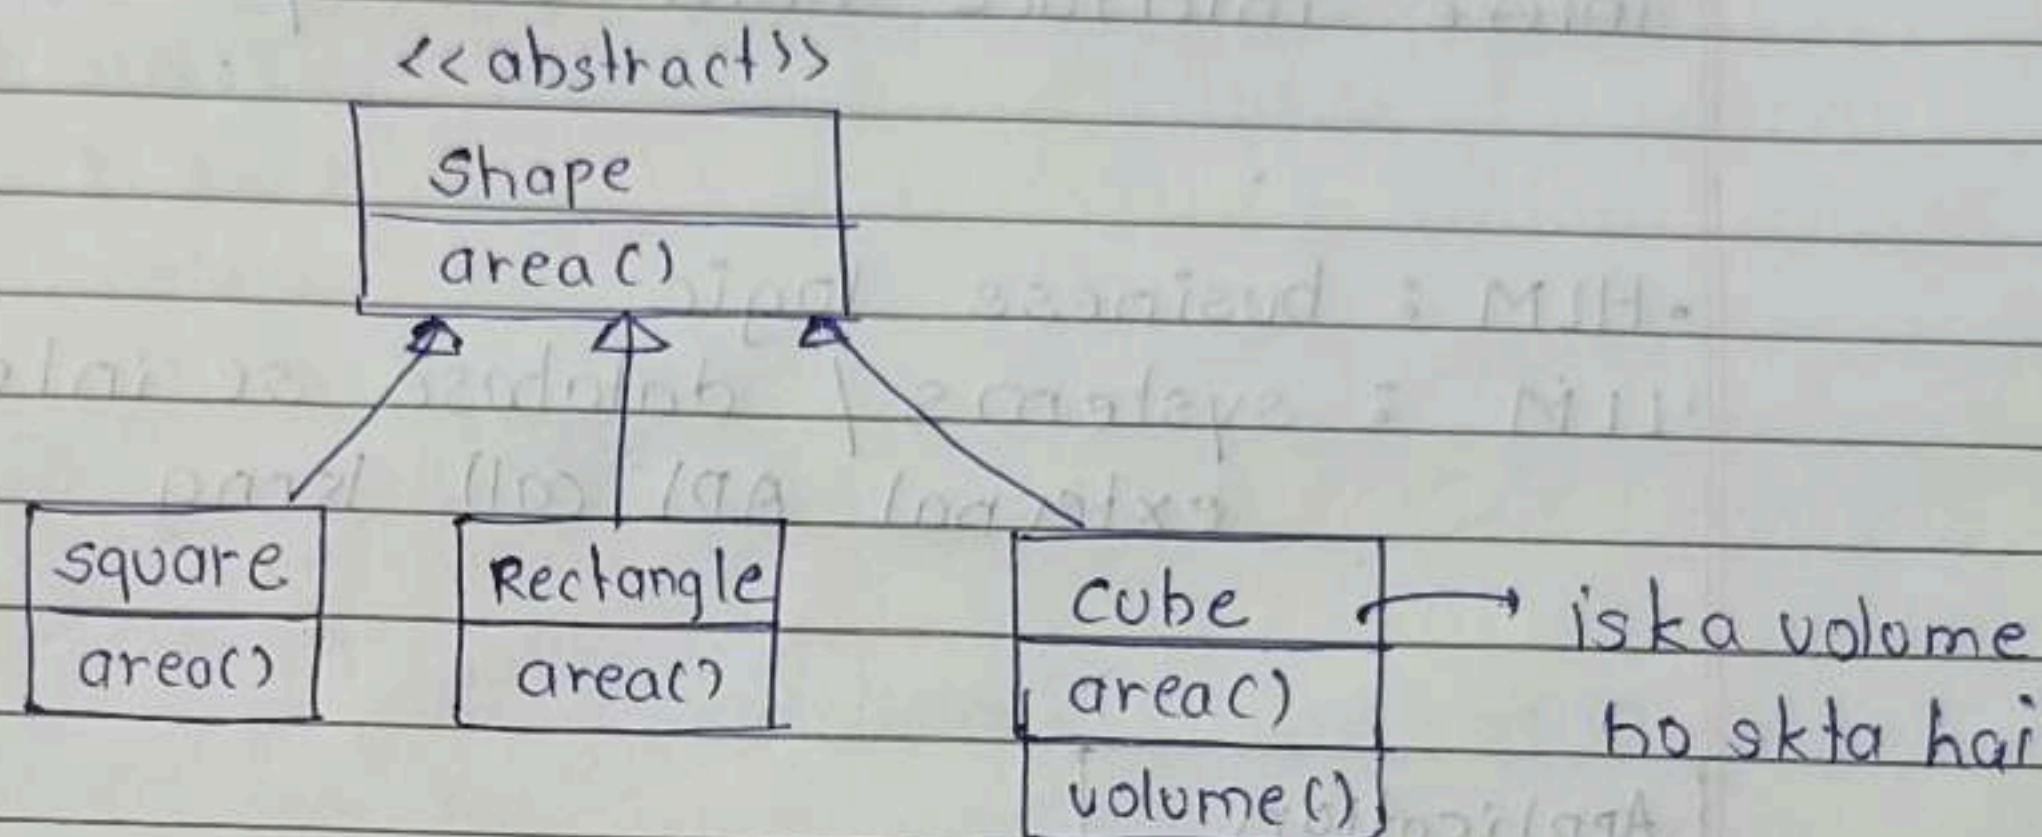 <<abstract>>
Shape
area()
square
area()
Rectangle
area()
cube
area()
volume()
iska volume
ho skta hai